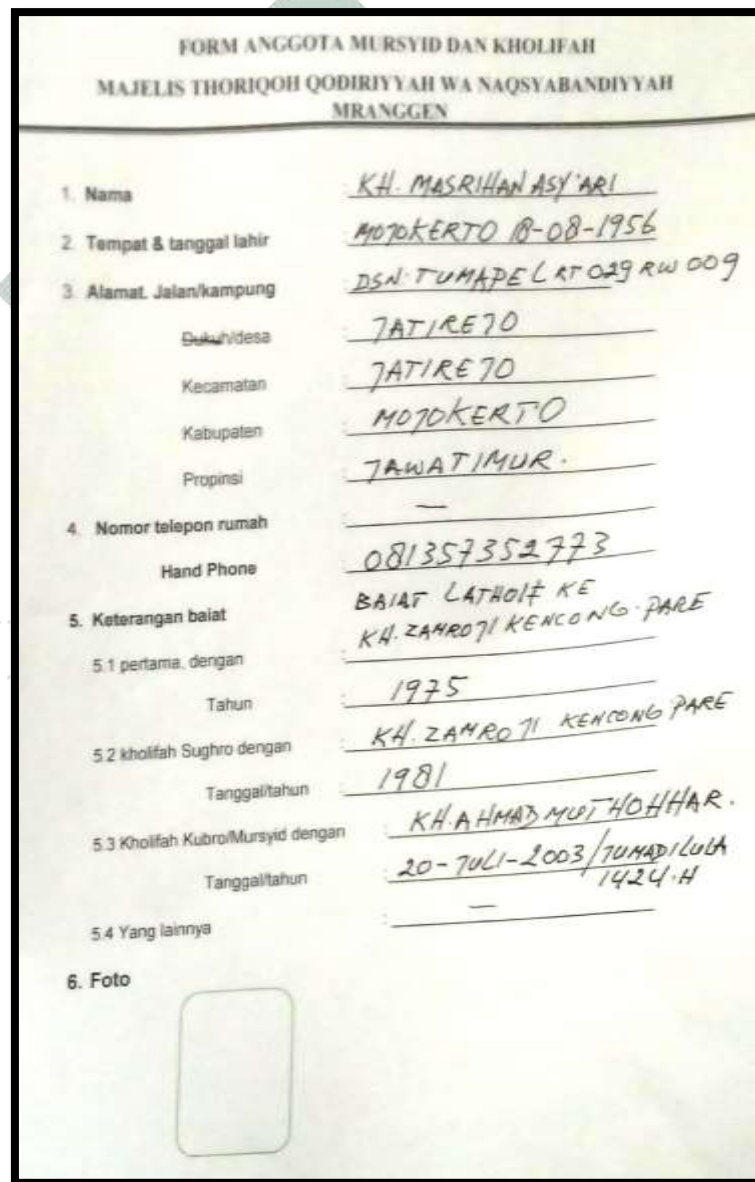 FORM ANGGOTA MURSYID DAN KHOLIFAH
MAJELIS THORIQOH QODIRIYYAH WA NAQSYABANDIYYAH
MRANGGEN
1. Nama : KH. MASRIHAN ASY'ARI
2. Tempat & tanggal lahir : MOJOKERTO 18-08-1956
3. Alamat. Jalan/kampung : DSN. TUMAPEL RT 029 RW 009
Dukuh/desa : JATIREJO
Kecamatan : JATIREJO
Kabupaten : MOJOKERTO
Propinsi : JAWATIMUR.
4. Nomor telepon rumah : —
Hand Phone : 081357352773
5. Keterangan baiat BAIAT LATHOIF KE
5.1 pertama, dengan : KH. ZAMROJI KENCONG. PARE
Tahun : 1975
5.2 kholifah Sughro dengan : KH. ZAMROJI KENCONG PARE
Tanggal/tahun : 1981
5.3 Kholifah Kubro/Mursyid dengan : KH. AHMAD MUTHOHHAR.
Tanggal/tahun : 20-JULI-2003/JUMADILULA
1424.H
5.4 Yang lainnya : —
6. Foto